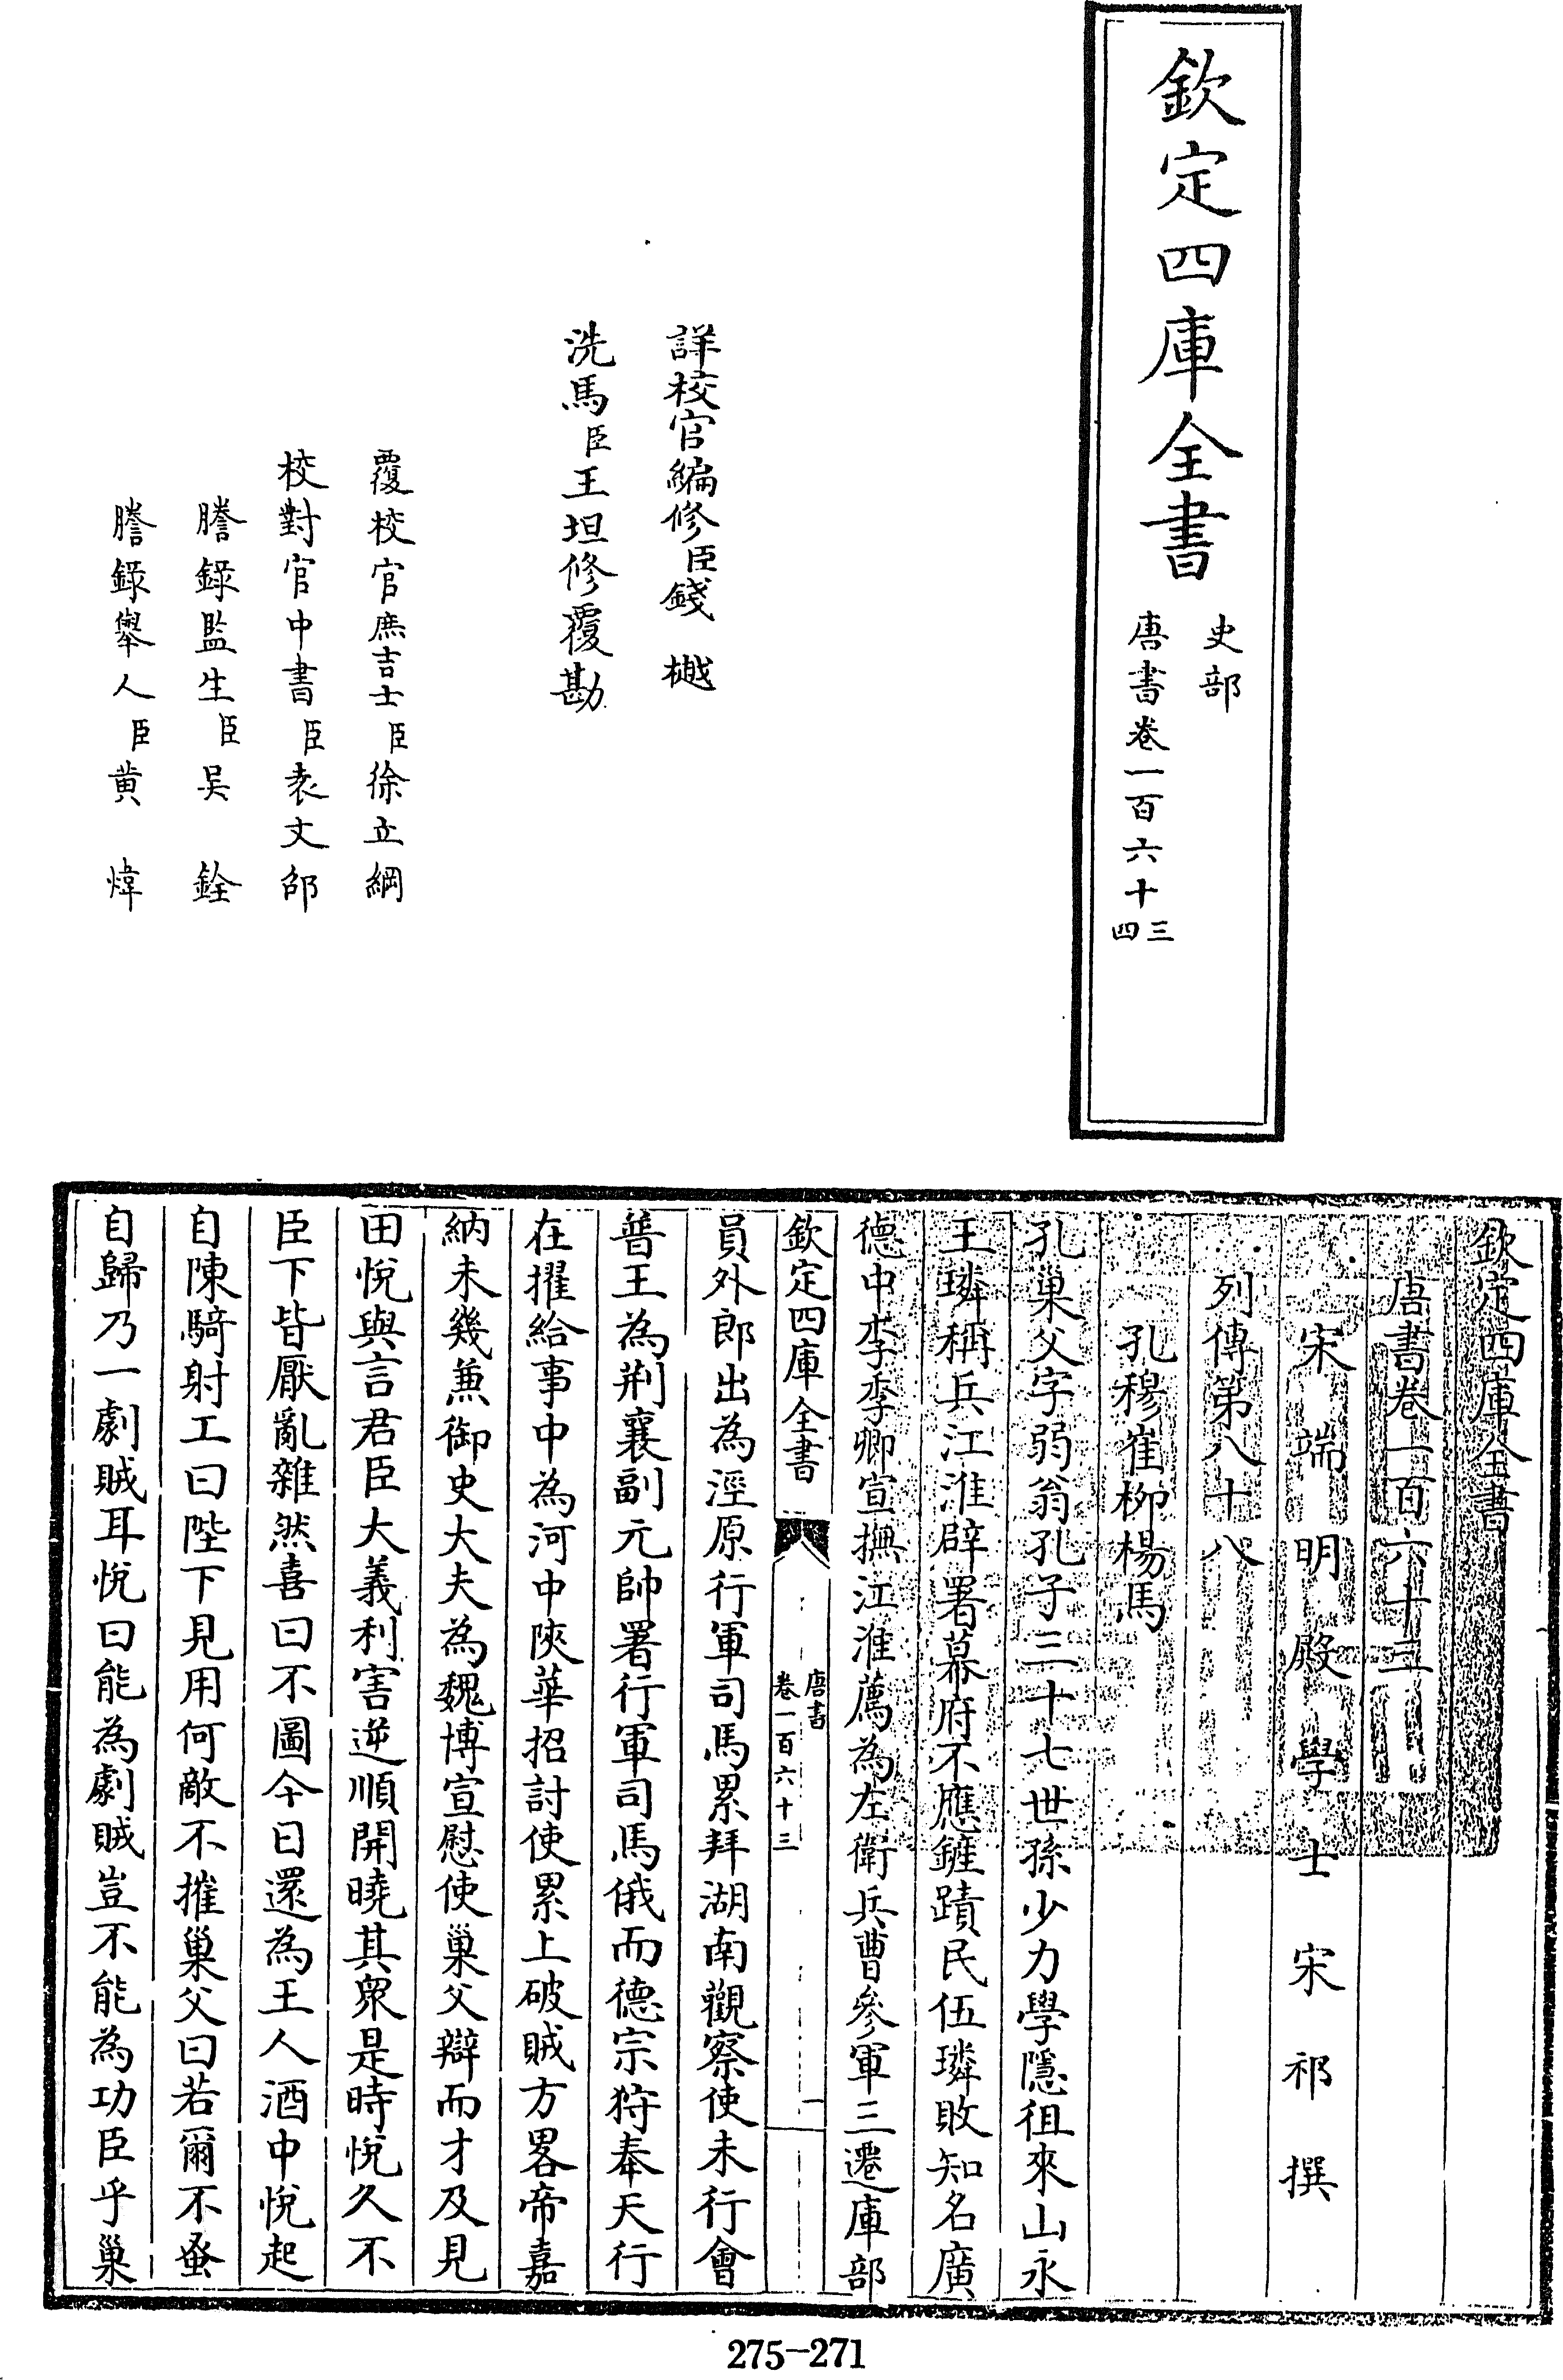 欽定四庫全書
史部
唐書卷一百六十三四
詳校官編修臣錢樾
洗馬臣王坦修覆勘
覆校官庶吉士臣徐立綱
校對官中書臣袁文邵
謄錄監生臣吳銓
謄錄舉人臣黄煒
欽定四庫全書
唐書卷一百六十三
宋端明殿學士宋祁撰
列傳第八十八
孔穆崔柳楊馬
孔巢父字弱翁孔子三十七世孫少力學隱徂來山永
王璘稱兵江淮辟署幕府不應鏟蹟民伍璘敗知名廣
德中李季卿宣撫江淮薦為左衛兵曹參軍三遷庫部
欽定四庫全書
唐書
卷一百六十三
一
員外郎出為涇原行軍司馬累拜湖南觀察使未行會
普王為荆襄副元帥署行軍司馬俄而德宗狩奉天行
在擢給事中為河中陝華招討使累上破賊方畧帝嘉
納未幾兼御史大夫為魏博宣慰使巢父辯而才及見
田悅與言君臣大義利害逆順開曉其衆是時悅久不
臣下皆厭亂雜然喜曰不圖今日還為王人酒中悅起
自陳騎射工曰陛下見用何敵不摧巢父曰若爾不蚤
自歸乃一劇賊耳悅曰能為劇賊豈不能為功臣乎巢
275-271